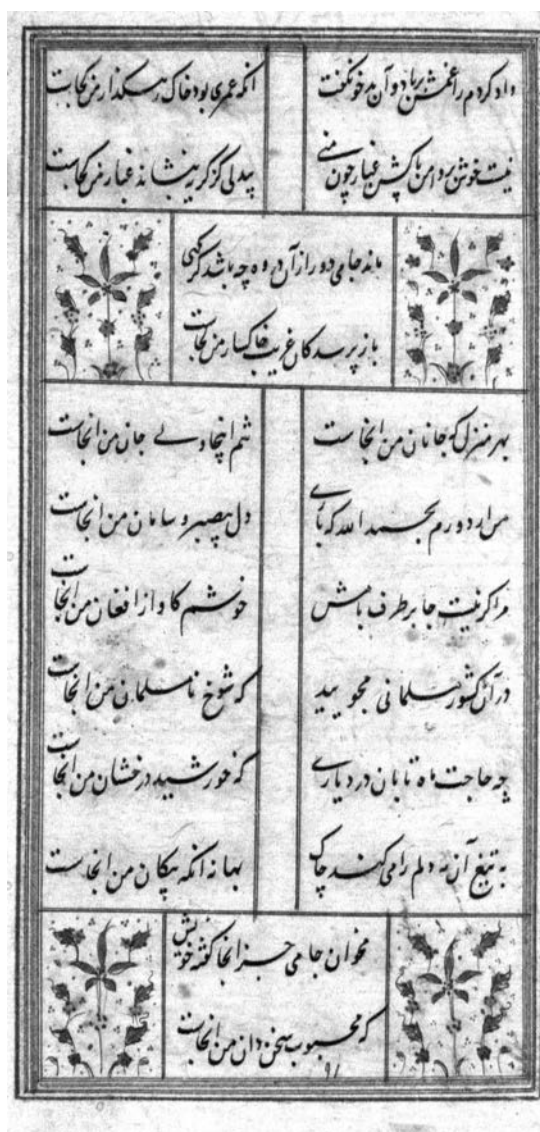 داد کردم را غمش بر باد و آن بدخو نگفت آنکه عمری بود خاک رهگذار من کجاست
نیست خوش بر دامن پاکش غبار چون منی بیدلی کز گریه بنشاند غبار من کجاست
مانده جامی دور از آن در وه چه باشد گر گهی
باز پرسد کان غریب خاکسار من کجاست
بهر منزل که جانان من آنجاست تنم اینجا ولی جان من آنجاست
من ار دورم بحمد الله که باری دل بیصبر و سامان من آنجاست
مرا گر نیست جا بر طرف بامش خوشم کاواز افغان من آنجاست
در آن کشور مسلمانی مجویید که شوخ نامسلمان من آنجاست
چه حاجت ماه تابان در دیاری که خورشید درخشان من آنجاست
به تیغ آن مه دلم را می کند چاک بهانه آنکه پیکان من آنجاست
مخوان جامی جز آنجا گفته خویش
که محبوب سخن دان من آنجاست